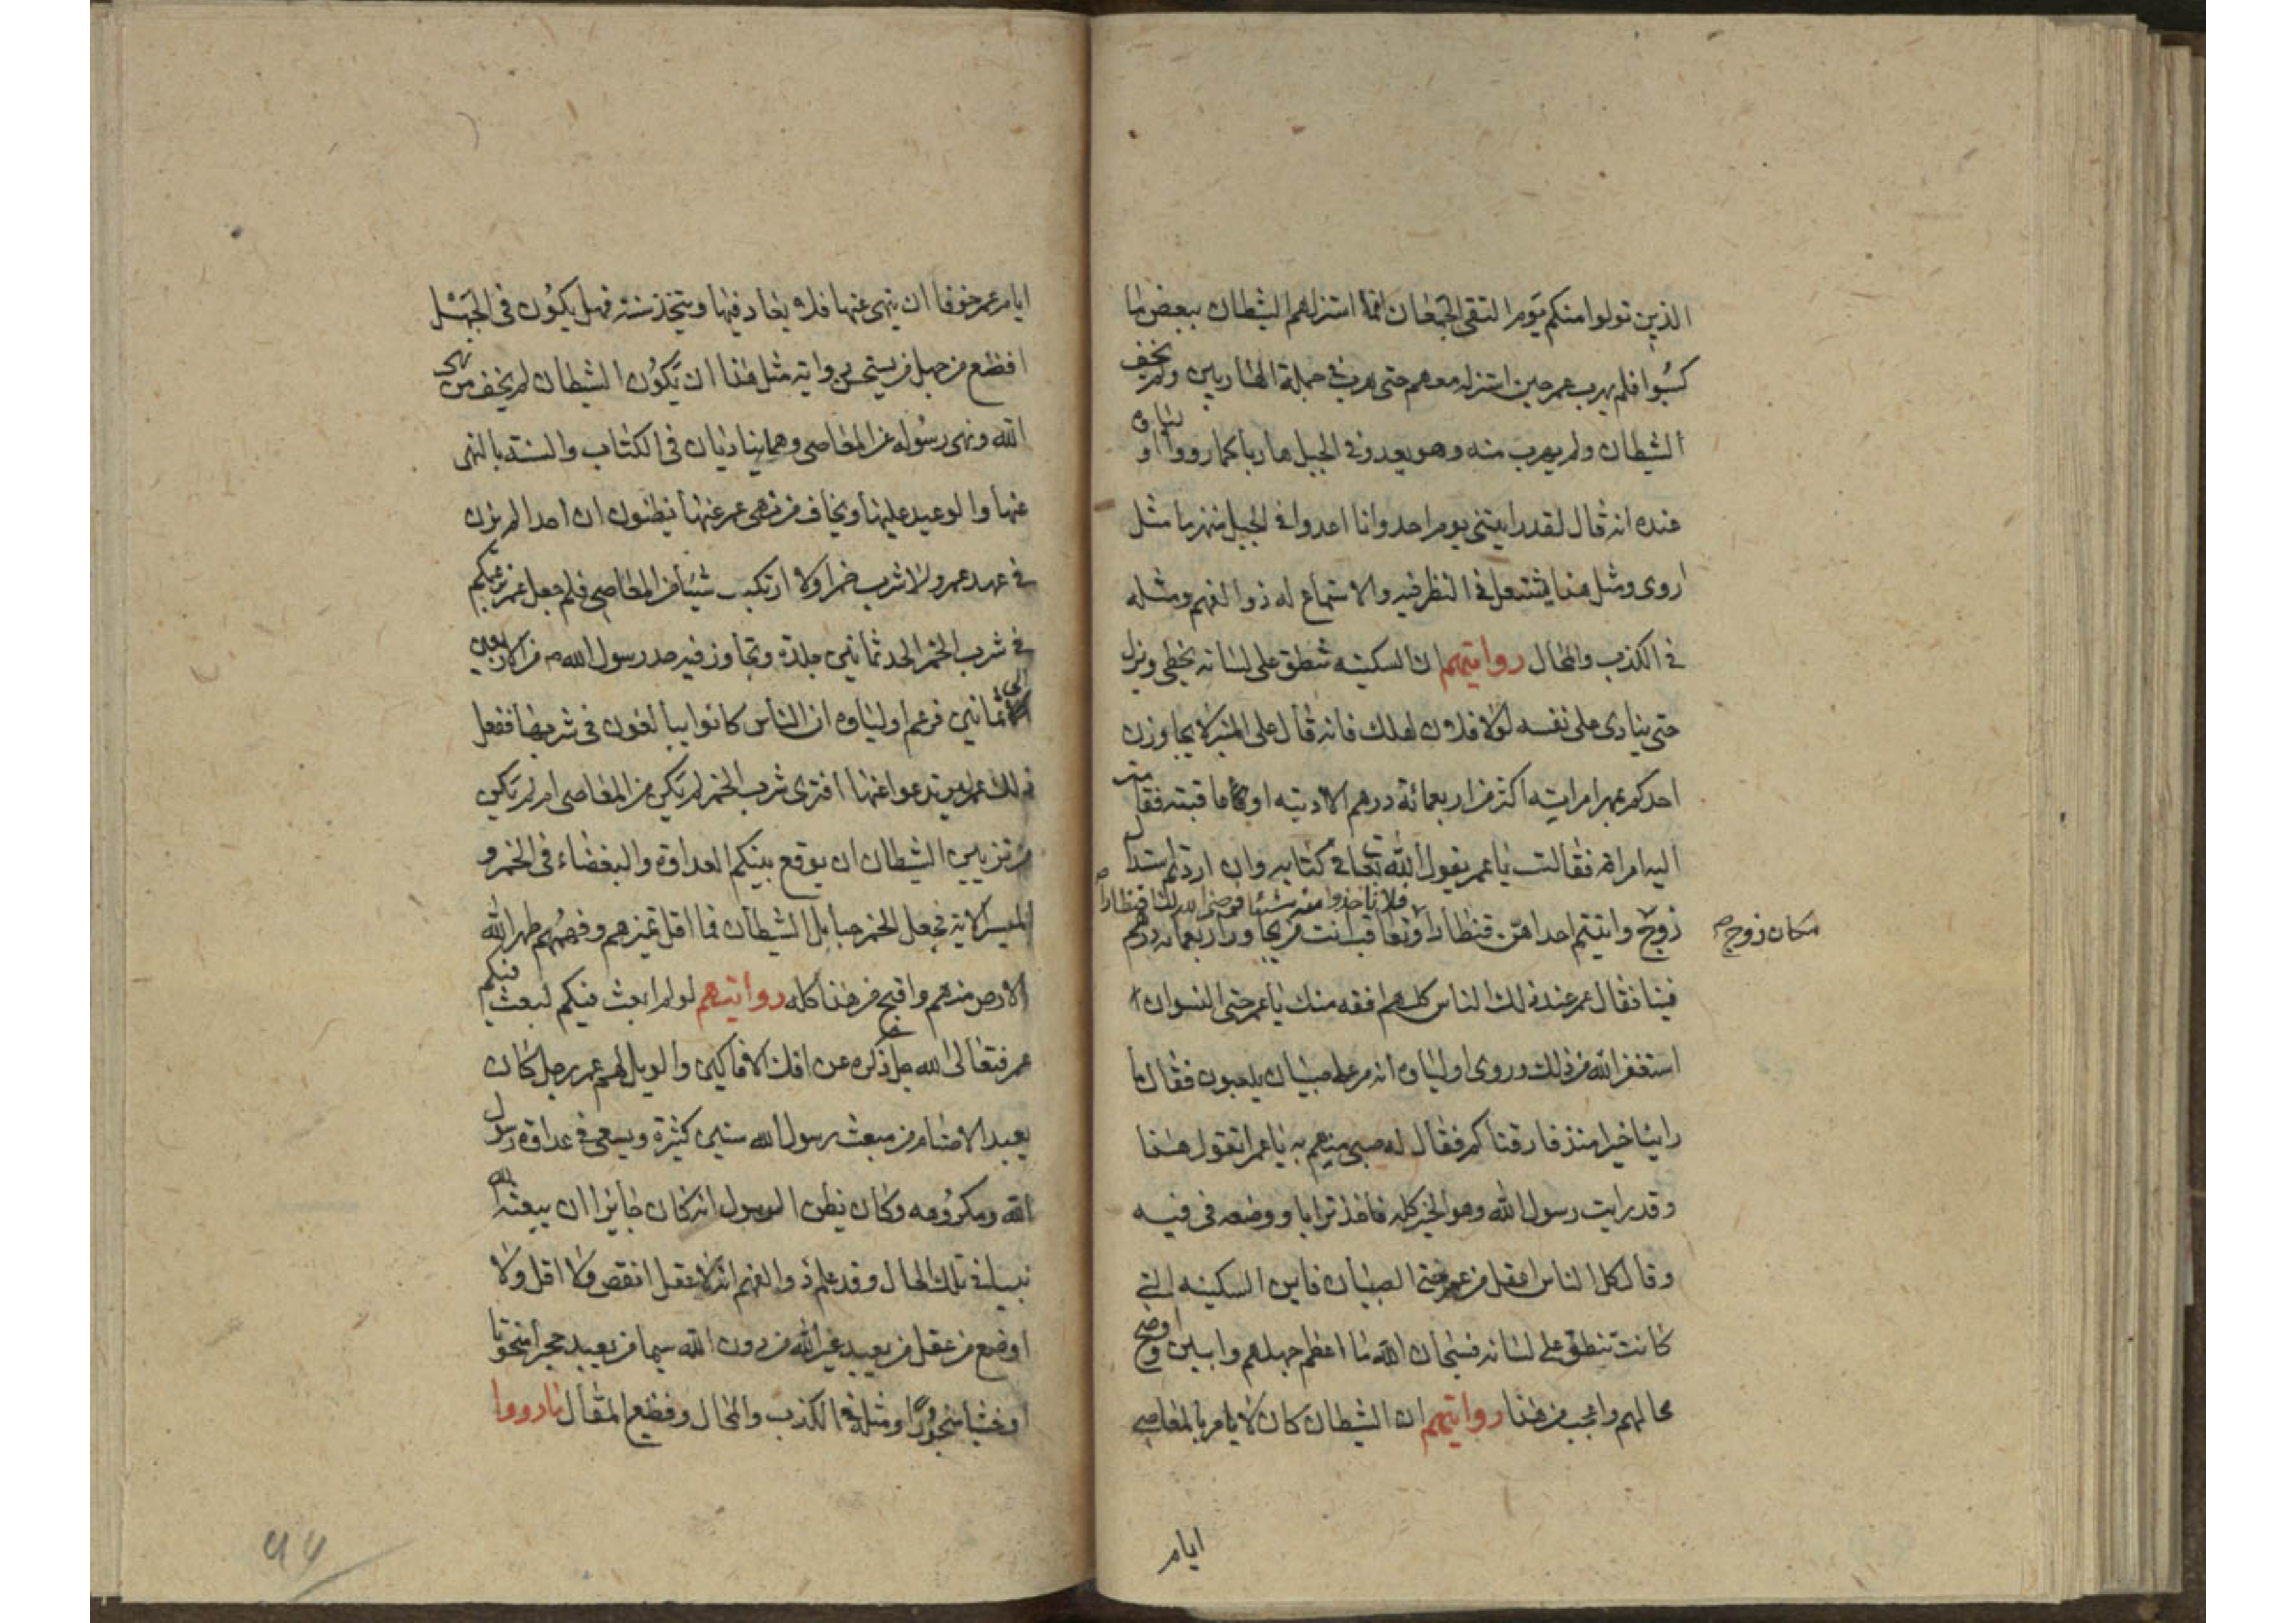 الذين تولوا منكم يوم التقى الجمعان انما استزلهم الشيطان ببعض ما
كسبوا فلم يهرب عمر حين استزله معهم حتى هرب في جملة الهاربين ولم يخف
الشيطان ولم يهرب منه وهو يعدو في الجبل هاربا كما رووا اولياؤه
عنده انه قال لقد رايتني يوم احد وانا اعدوا في الجبل منهزما مثل
اروى ومثل هذا في النظر فيه والاستماع له ذوا الفهم ومثله
في الكذب والمحال روايتهم ان السكينه تنطق على لسانه يخطي ويزل
حتى ينادى على نفسه لولا فلان لهلك فانه قال على المنبر لا يجاوزن
احدكم بمهر امرايته اكثر من اربعمائة درهم الا ادبته او عاقبته فقامت
اليه امراة فقالت يا عمر يقول الله تعالى في كتابه وان اردتم استبدال
فلا تاخذوا منه شيئا
زوج واتيتم احداهن قنطارا وتعاقب انت من يجاوز اربعمائة درهم
مكان زوج
فينا فقال عمر عند ذلك الناس كلهم افقه منك يا عمر حتى النسوان
استغفر الله من ذلك وروى اولياؤه انه مر على صبيان يلعبون فقال ما
راينا خيرا منذ فارقناكم فقال له صبي منهم يا عمر اتقول هذا
وقد رايت رسول الله وهو الخير كله فاخذ ترابا ووضعه في فيه
وقال كل الناس اعقل من عمر حتى الصبيان فاين السكينه التي
كانت تنطق على لسانه فسبحان الله ما اعظم جهلهم وابين واوضح
محالهم واعجب من هذا روايتهم ان الشيطان كان لا يامر بالمعاصي
ايام
ايام عمر خوفا ان ينهى عنها فلا يعاد فيها ويتخذ سنته فهل يكون في الجهل
افظع من جهل من يستحسن رواية مثل هذا ان يكون الشيطان لم يخف من نهى
الله ونهى رسوله عن المعاصي وهما يناديان في الكتاب والسنة بالنهى
عنها والوعيد عليها ويخاف من نهى عمر عنها يظنون ان احدا لم يزن
في عهد عمر ولا شرب خمرا ولا ارتكب شيئا من المعاصي فلم جعل عمر بزعمكم
في شرب الخمر الحد ثمانين جلدة وتجاوز فيه حد رسول الله من الاربعين
الى ثمانين فزعم اولياؤه ان الناس كانوا يبالغون في شربها ففعل
ذلك عمر ليرتدعوا عنها افترى شرب الخمر لم يكن من المعاصي ام لم يكن
من تزيين الشيطان ان يوقع بينكم العداوة والبغضاء في الخمر و
الميسر الاية فجعل الخمر حبايل الشيطان فما اقل تميزهم وفهمهم طهر الله
الارض منهم واقبح من هذا كله روايتهم لو لم ابعث فيكم لبعث فيكم
عمر فتعالى الله جل ذكره عن افك الافاكين والويل لهم عمر رجل كان
يعبد الاصنام من مبعث رسول الله سنين كثيرة ويسعى في عداوة رسول
الله ومكروهه وكان يظن الرسول انه كان جايزا ان يبعثه الله
نبيا في تلك الحال وقد علم ذوا الفهم انه لا عقل انقص ولا اقل ولا
اوضع من عقل من يعبد غير الله من دون الله سيما من يعبد حجرا منحوتا
او خشبا منجورا ومثله في الكذب والمحال وفظيع المقال ما رووا